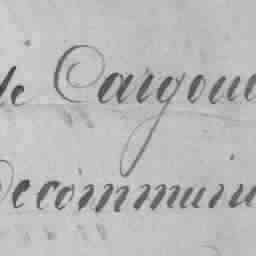 de Cargoue
Decommuni